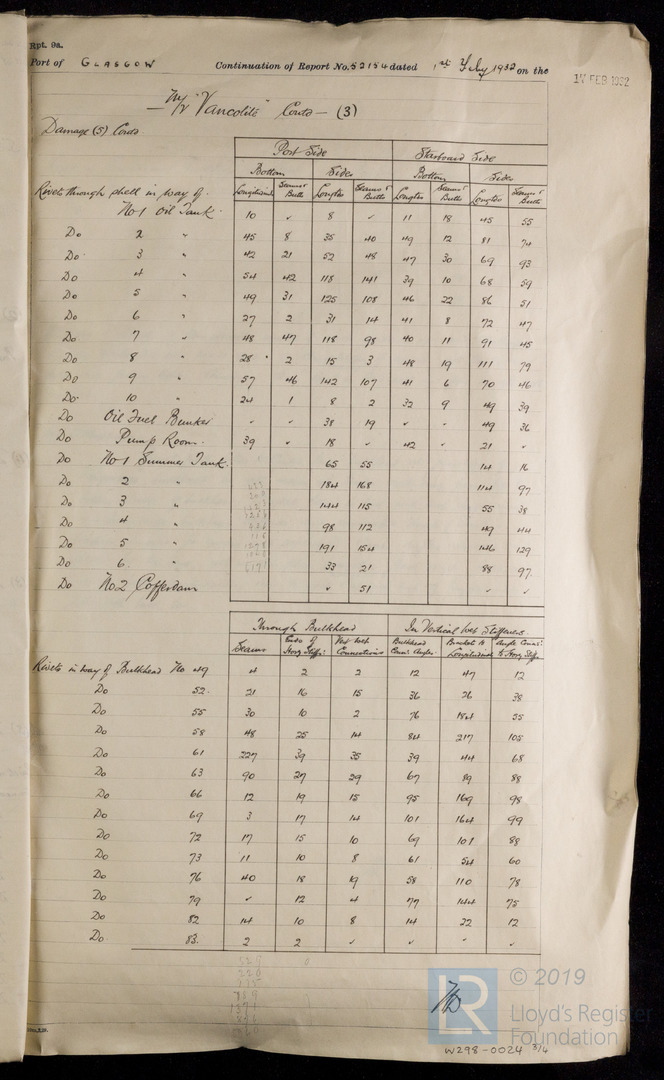 Rpt. 9a.
Port of GLASGOW Continuation of Report No. 52154 dated 1st Feby 1932 on the
17 FEB 1932
M/V "Vancolite" Contd - (3)
Damage (5) Contd.
Port Side Starboard Side
Bottom Sides Bottom Sides
Longitudinal Seams & Butts Longtls Seams & Butts Longtls Seams & Butts Longtls Seams & Butts
Rivets through shell in way of.
No 1 Oil Tank. 10 ✓ 8 ✓ 11 18 45 55
Do 2 " 45 8 35 40 49 12 81 74
Do 3 " 42 21 52 48 47 30 69 93
Do 4 " 54 42 118 141 39 10 68 59
Do 5 " 49 31 125 108 46 22 86 51
Do 6 " 27 2 31 14 41 8 72 47
Do 7 " 48 47 118 98 40 11 91 45
Do 8 " 28 2 15 3 48 19 111 79
Do 9 " 57 46 142 107 41 6 70 46
Do 10 " 24 1 8 2 32 9 49 39
Do Oil Fuel Bunker ✓ ✓ 38 19 ✓ ✓ 49 36
Do Pump Room. 39 ✓ 18 ✓ 42 ✓ 21 ✓
Do No 1 Summer Tank. 65 55 14 16
Do 2 " 184 168 114 97
Do 3 " 144 115 55 38
Do 4 " 98 112 49 44
Do 5 " 191 154 146 129
Do 6 " 33 21 88 97
Do No 2 Cofferdam ✓ 51 ✓ ✓
Through Bulkhead In Vertical Web Stiffeners
Seams Ends of Horz Stiffs: Vert Web Connections Bulkhead Conn. Angles Brackets to Longitudinal Angle Conns: to Horz Stiffs.
Rivets in way of Bulkhead No 49 4 2 2 12 47 12
Do 52. 21 16 15 36 26 38
Do 55 30 10 2 76 184 55
Do 58 48 25 14 84 217 105
Do 61 227 39 35 39 44 68
Do 63 90 27 29 67 89 88
Do 66 12 19 15 95 169 98
Do 69 3 17 14 101 164 99
Do 72 17 15 10 69 101 88
Do 73 11 10 8 61 54 60
Do 76 40 18 19 58 110 78
Do 79 ✓ 12 4 77 144 75
Do 82 14 10 8 14 22 12
Do 83. 2 2 ✓ ✓ ✓ ✓
LR © 2019
Lloyd's Register
Foundation
W298-0024 3/4